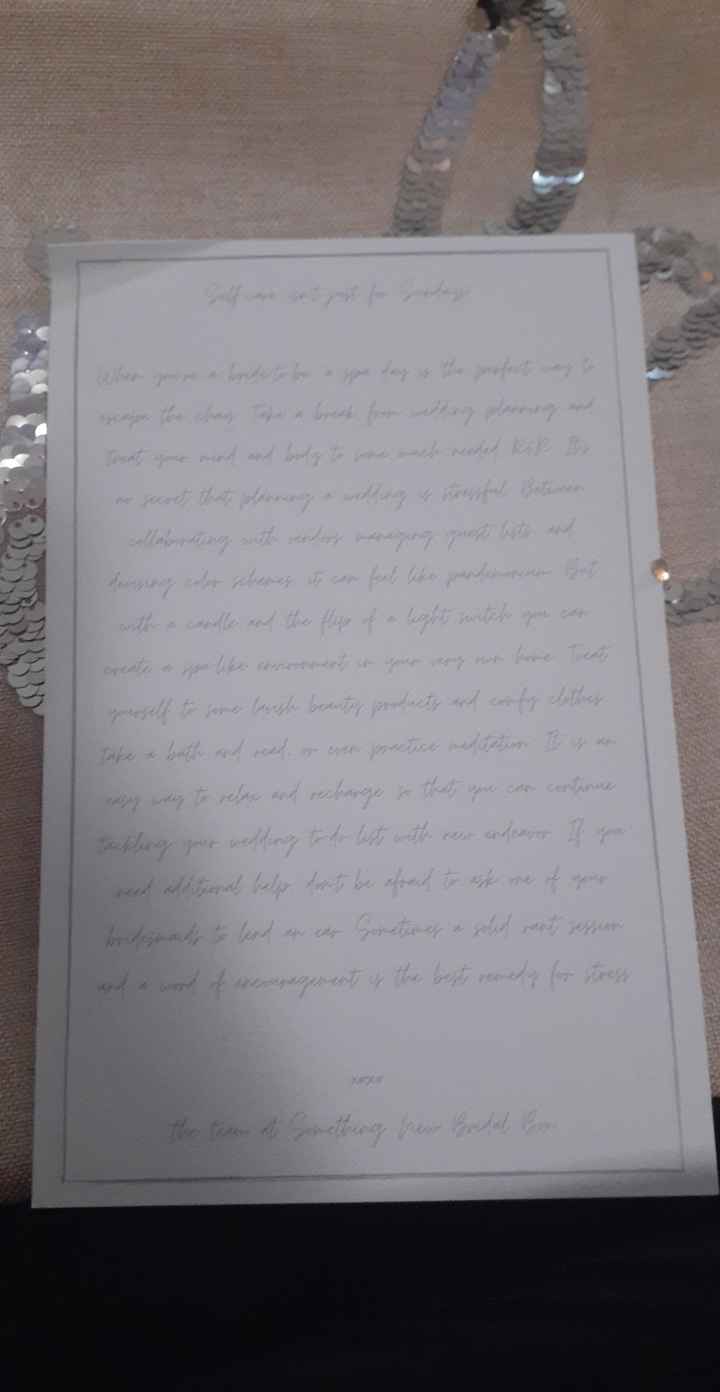 Self care isn't just for Sundays!
When you're a bride to be a spa day is the perfect way to
escape the chaos Take a break from wedding planning and
treat your mind and body to some much needed R&R It's
no secret that planning a wedding is stressful Between
collaborating with vendors managing guest lists and
devising color schemes it can feel like pandemonium But
with a candle and the flip of a light switch you can
create a spa like environment in your very own home Treat
yourself to some lavish beauty products and comfy clothes
take a bath and read, or even practice meditation It is an
easy way to relax and recharge so that you can continue
tackling your wedding to do list with new endeavor If you
need additional help don't be afraid to ask one of your
bridesmaids to lend an ear Sometimes a solid rant session
and a word of encouragement is the best remedy for stress
xoxo
the team at Something New Bridal Box